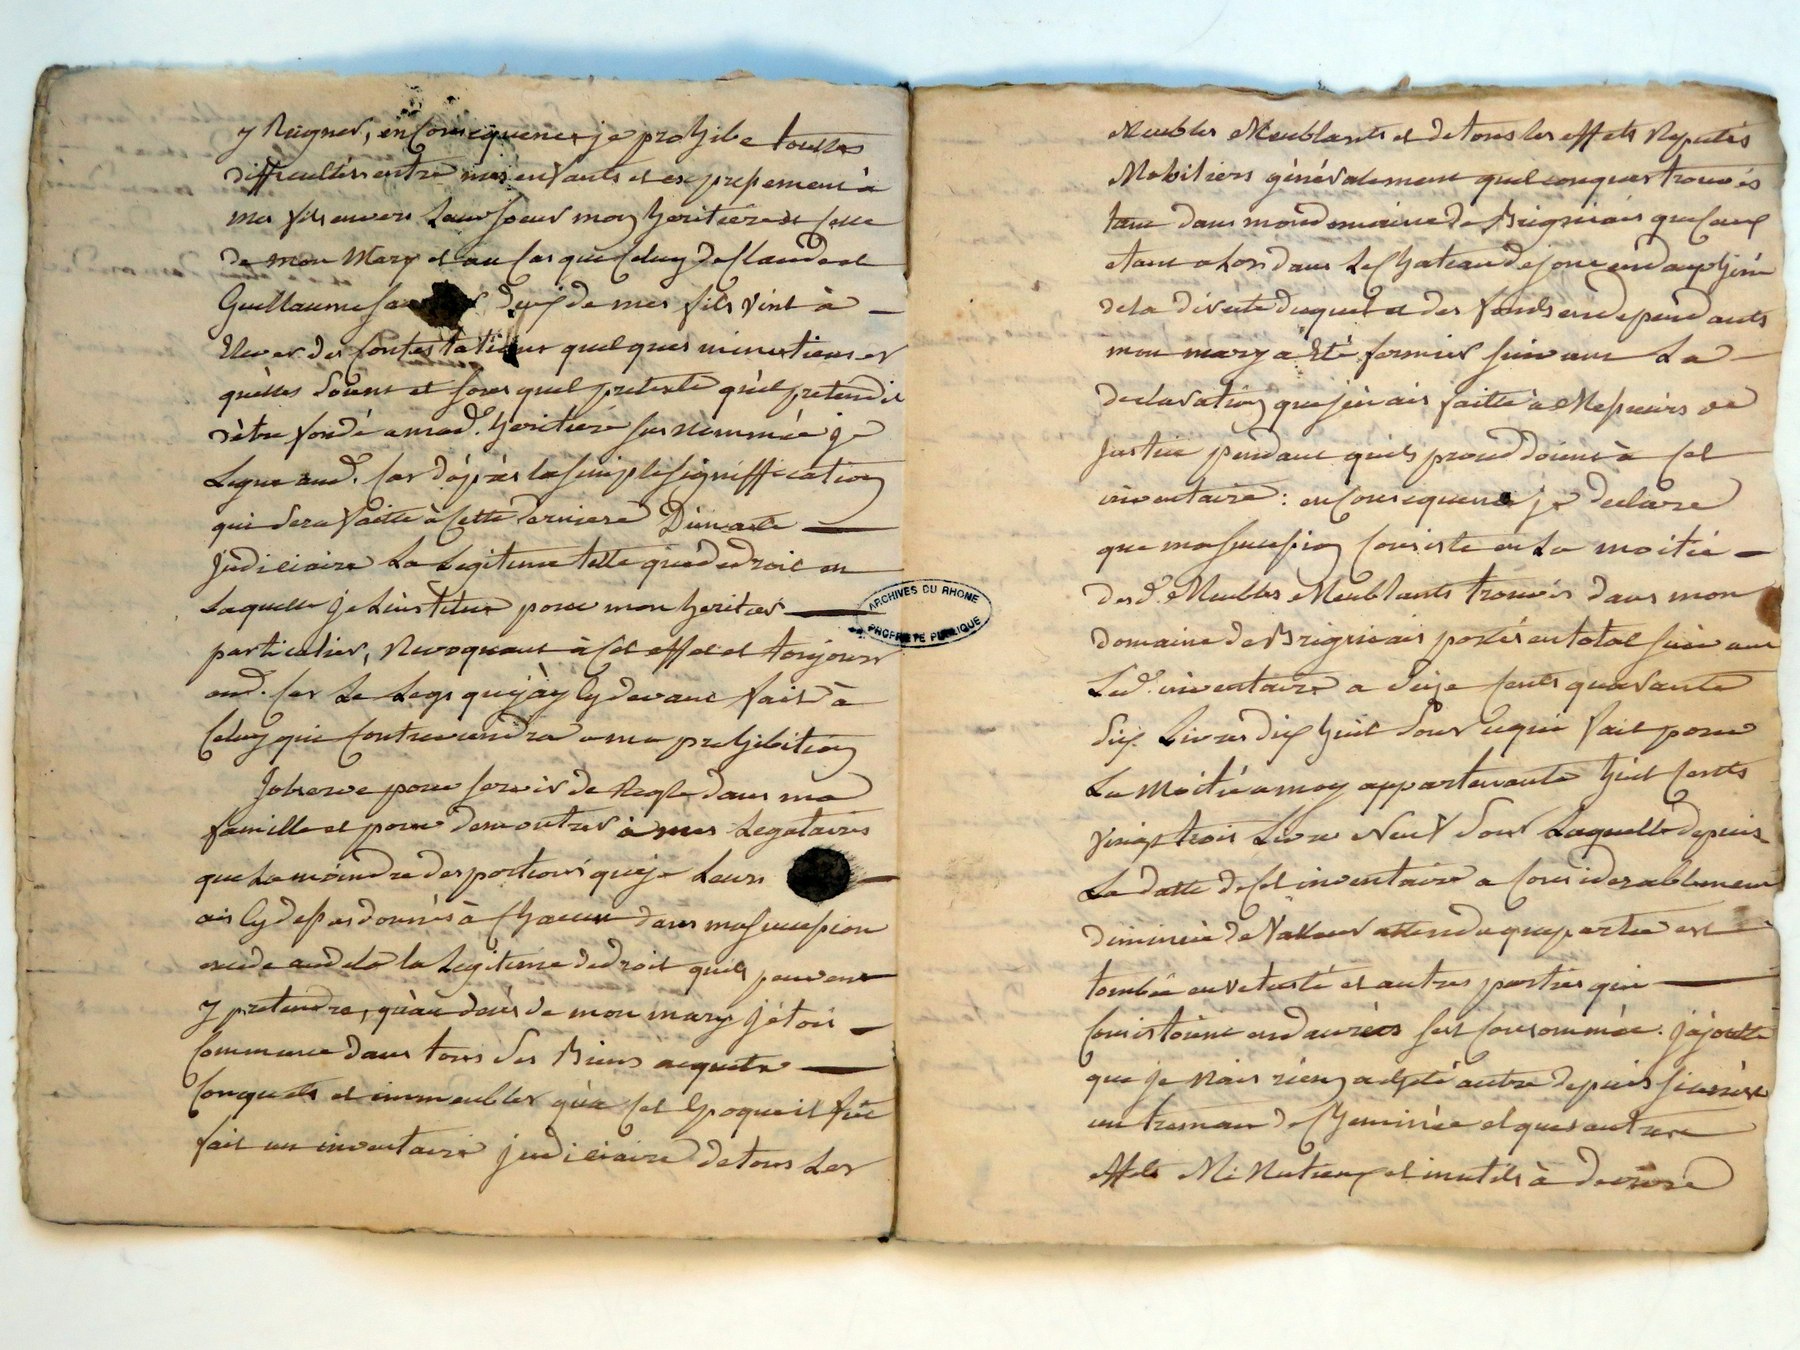 y Reigner, en consequence je prohibe touttes
difficultés entre mes enfants et expressement à
mes fils envers Leur soeur mon heritiere et celle
de mon Mary et au cas que Celuy de Claude et
Guillaume deux de mes fils vint à
Elever des Contestations quelques minutieuses
qu'elles soient et sous quel pretexte qu'il pretendit
d'être fondé a mad. heritiere sus nommée je
Legue aud. cas d'après la simple signiffication
qui sera faitte à Cette derniere Dimande
Judiciaire La Legitime telle que de droit en
Laquelle je L'institue pour mon heritier
particulier, Revoquant à cet effet et toujours
aud. cas Le Legs que j'ày cy devant fait à
Celuy qui Contreviendra a ma prohibition
J'observe pour servir de Regle dans ma
famille et pour demontrer à mes Legataires
que La moindre des portions que je Leurs
ais cy dessus données à Chacun dans ma succession
excede au dela la Legitime de droit quils peuvent
y pretendre, qu'au décés de mon mary J'étois
Commune dans tous Ses Biens acquets
Conquets et immeubles qu'a cet Epoque il fut
fait un inventaire judiciaire de tous Les
ARCHIVES DU RHONE
PROPRIETE PUBLIQUE
Meubles Meublants et de tous les effets Reputés
Mobiliers généralement quelconques trouvés
tant dans mon domaine de Brignais que Ceux
etant alors dans Le Chateau de jone en dauphiné
de la directe duquel et des fonds en dependants
mon mary a Eté fermier suivant La
declaration que j'en ais faitte à Messieurs de
Justice pendant quils proceddoient à Cet
inventaire : en Consequence je declare
que ma succession Consiste en La moitié
desd. Meubles Meublants trouvés dans mon
domaine de Brignais portés en total suivant
Led. inventaire a Seize Cents quarante
Six Livres dix huit Sous ce qui fait pour
La Moitié a moy appartenante huit Cents
vingt trois Livre Neuf Sous Laquelle depuis
La datte de Cet inventaire a Considerablement
diminué de Valleur attendu que partie est
tombée en vetusté et autres parties qui
Consistoient en danrées sest Consommée. J'ajoutte
que je n'ais rien acheté autre depuis
un tremau de Cheminée et ques autres
effets Minutieux et inutils à decrire